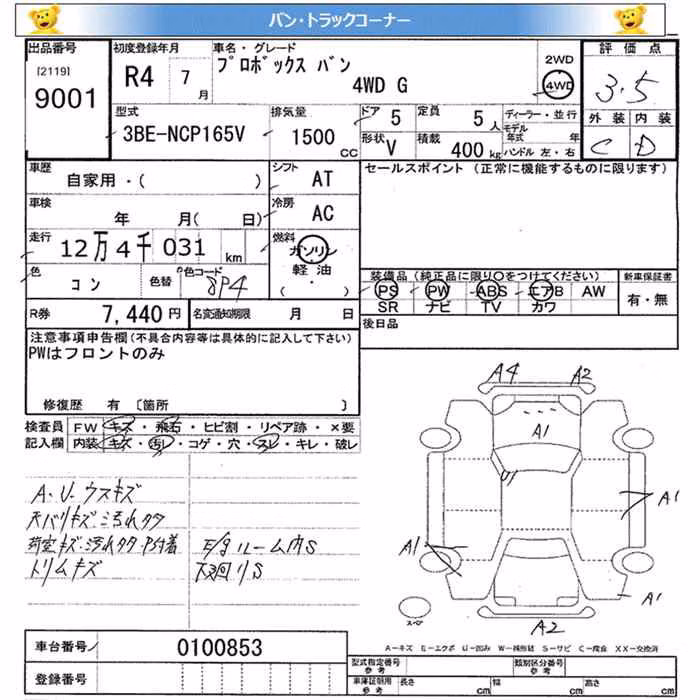 バン・トラックコーナー
出品番号
[2119]
9001
初度登録年月
R4 7月
車名・グレード
プロボックス バン
4WD G
2WD
4WD
評価点
3.5
外装 内装
C D
型式
3BE-NCP165V
排気量
1500 CC
ドア 5
定員 5人
形状 V
積載 400 kg
ディーラー・並行
モデル年式 年
ハンドル 左・右
車歴
自家用・( )
シフト AT
車検
年 月( 日)
冷房 AC
走行
12万4千031 km
燃料
ガソリン
軽油・
( )
色
コン
色替
色コード
8P4
R券 7,440円
名変通知期限 月 日
セールスポイント (正常に機能するものに限ります)
装備品 (純正品に限り○をつけてください)
PS PW ABS エアB AW
SR ナビ TV カワ
新車保証書
有・無
後日品
注意事項申告欄(不具合内容等は具体的に記入して下さい)
PWはフロントのみ
修復歴 有 〔箇所 〕
検査員記入欄
FW キズ・飛石・ヒビ割・リペア跡・×要
内装 キズ・汚レ・コゲ・穴・スレ・キレ・破レ
A・U・ウスキズ
天バリキズ・汚れタタ
荷室キズ・汚れタタ
トリムキズ
E/gルーム内S
下廻りS
A4 A2
A1
U
A1
A1
A1
A2
スペア
A-キズ E-エクボ U-凹み W-補修跡 S-サビ C-腐食 XX-交換済
車台番号 0100853
登録番号
型式指定番号 参考
類別区分番号 参考
車庫証明用 参考
長さ cm 幅 cm 高さ cm